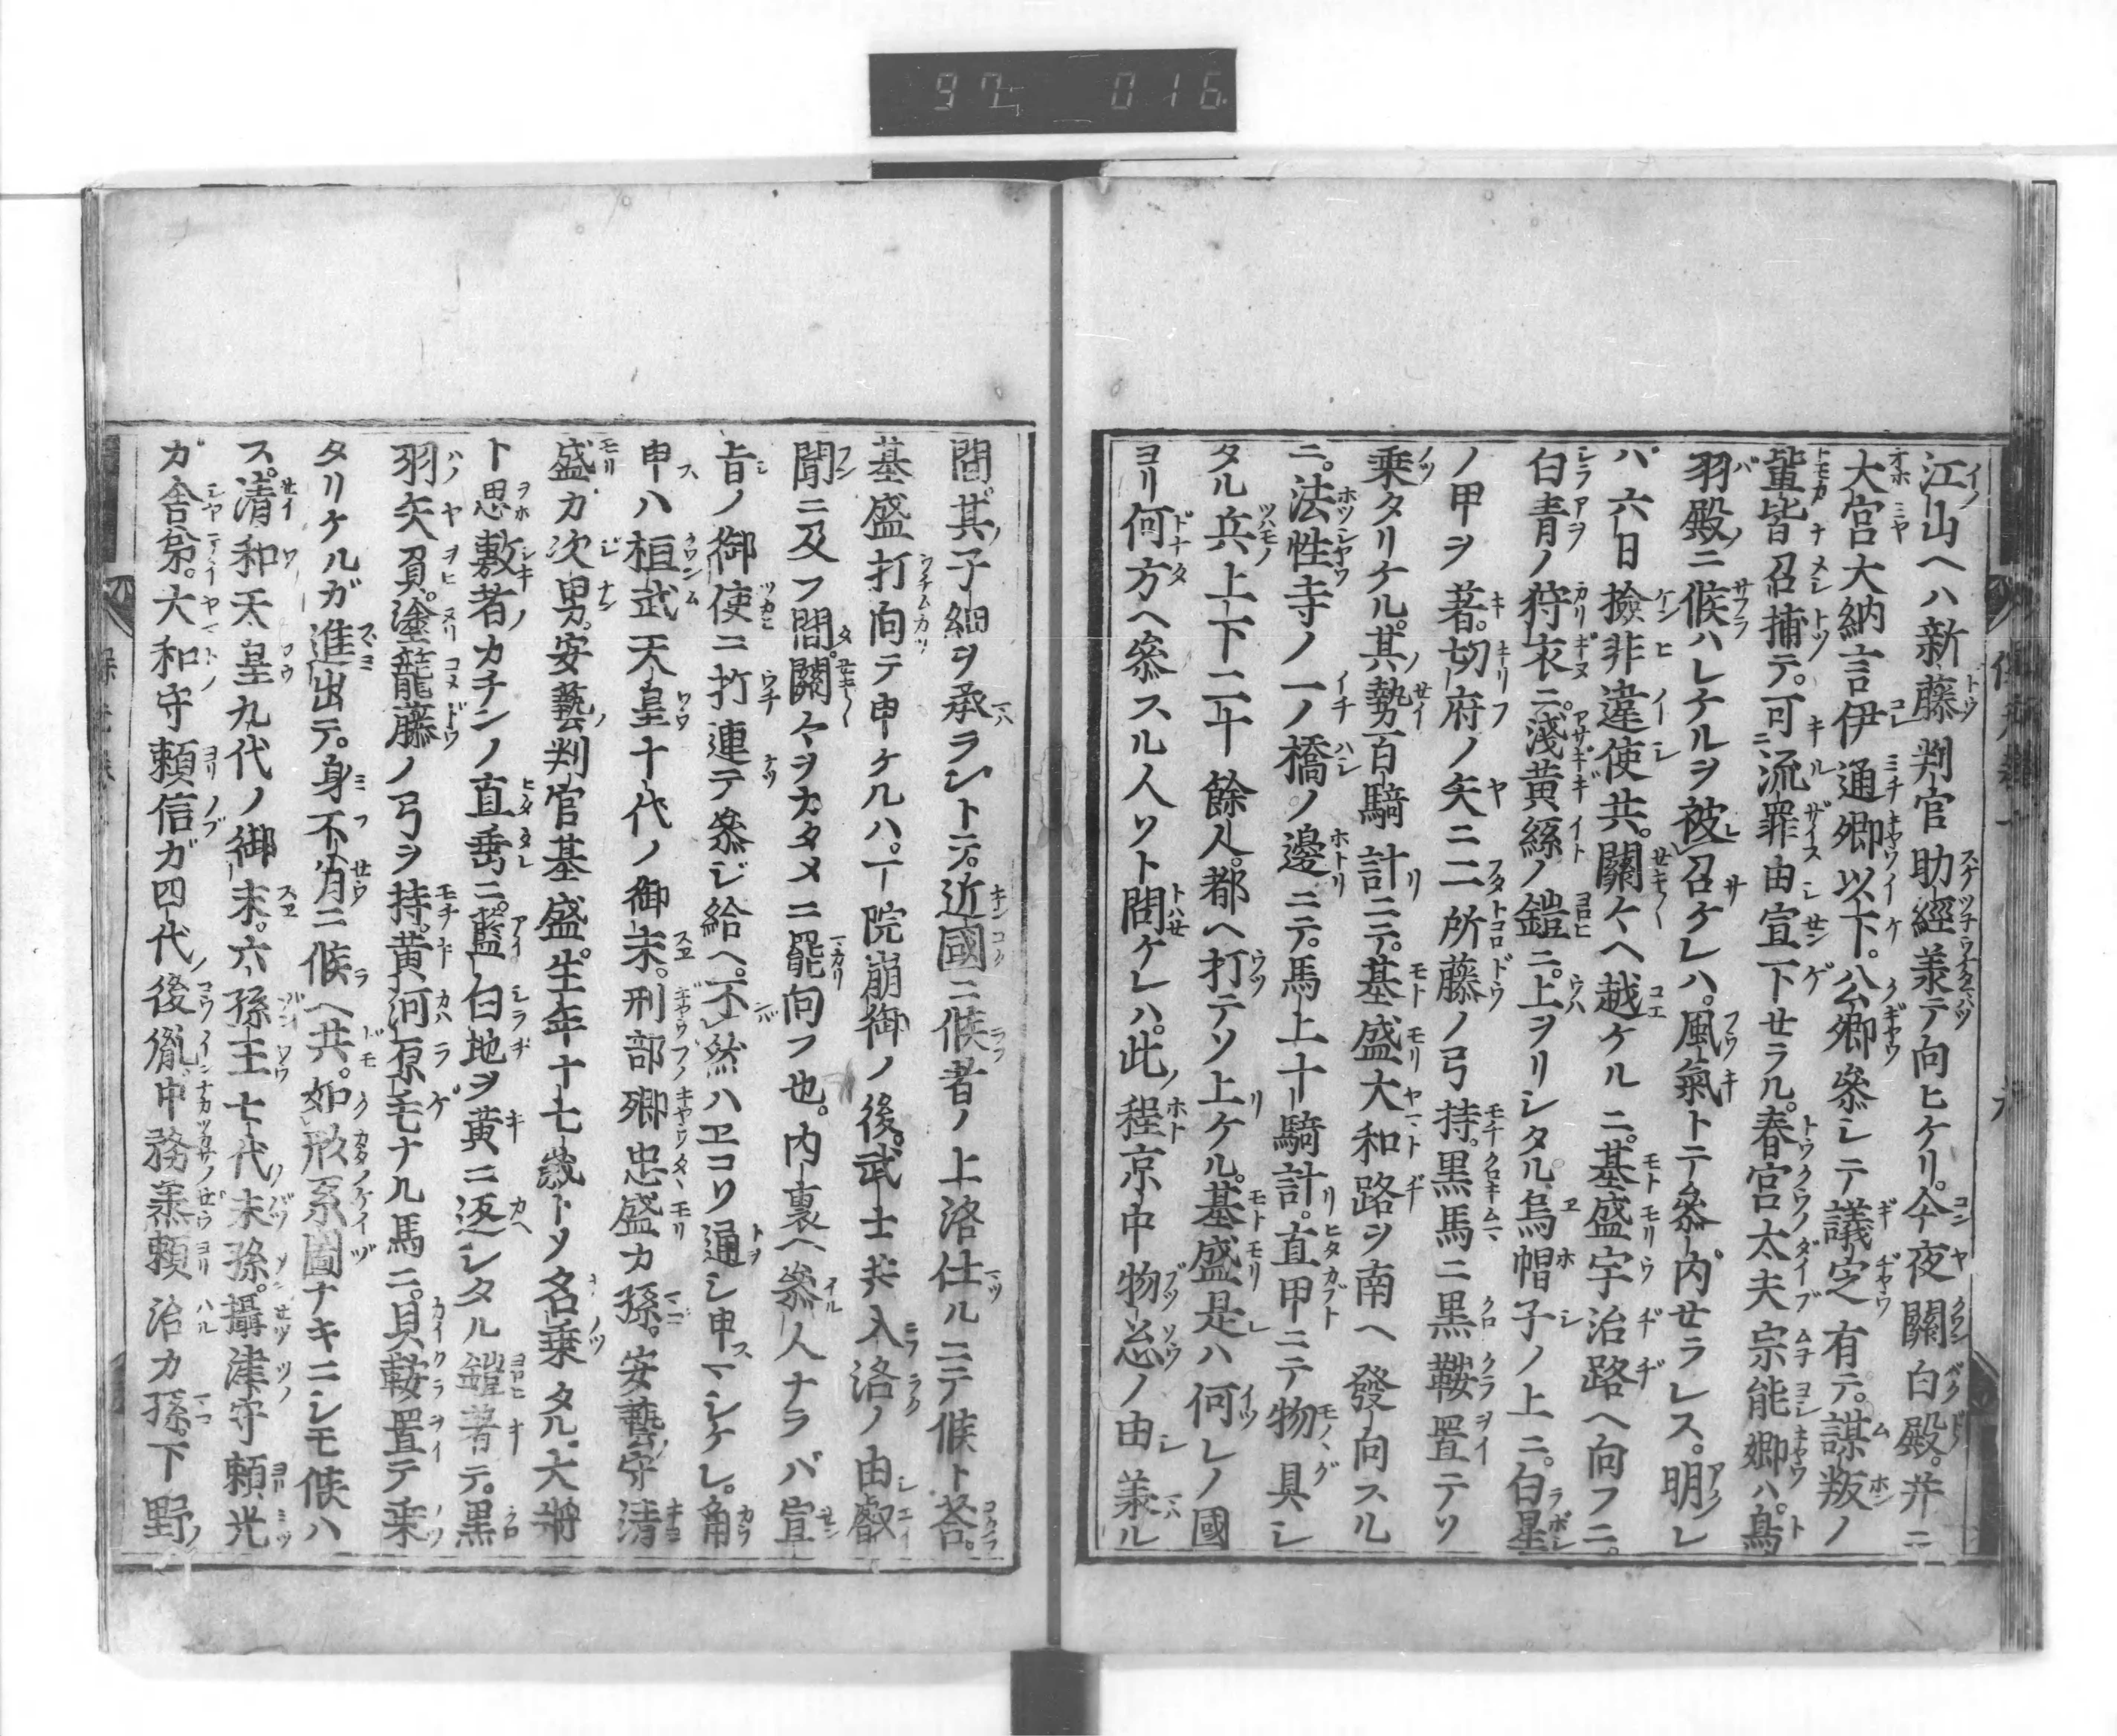 江山ヘハ新藤判官助經義テ向ヒケリ。今夜關白殿。并ニ
大宮大納言伊通卿以下。公卿參シテ議定有テ。謀叛ノ
輩皆召捕テ。可流罪由宣下セラル。春宮太夫宗能卿ハ。鳥
羽殿ニ候ハレケルヲ被召ケレハ。風氣トテ參内セラレス。明レ
ハ六日撿非違使共。關々ヘ越ケルニ。基盛宇治路ヘ向フニ。
白青ノ狩衣ニ。淺黄絲ノ鎧ニ。上ヲリシタル烏帽子ノ上ニ。白星
ノ甲ヲ著。切府ノ矢ニ二所藤ノ弓持。黒馬ニ黒鞍置テソ
乘タリケル。其勢百騎計ニテ。基盛大和路ヲ南ヘ發向スル
ニ。法性寺ノ一ノ橋ノ邊ニテ。馬上十騎計。直甲ニテ物具シ
タル兵上下二十餘人。都ヘ打テソ上ケル。基盛是ハ何レノ國
ヨリ何方ヘ參スル人ソト問ケレハ。此程京中物忩ノ由義ル
間。其子細ヲ承ラントテ。近國ニ候者ノ上洛仕ルニテ候ト荅。
基盛打向テ申ケルハ。一院崩御ノ後。武士共入洛ノ由叡
聞ニ及フ間。關々ヲカタメニ罷向フ也。内裏ヘ參人ナラバ宣
旨ノ御使ニ打連テ參ジ給ヘ。不然ハヱコソ通シ申マシケレ。角
申ハ桓武天皇十代ノ御末。刑部卿忠盛カ孫。安藝守清
盛カ次男。安藝判官基盛。生年十七歳トソ名乘タル。大將
ト思敷者カチンノ直垂ニ。藍白地ヲ黄ニ返シタル鎧著テ。黒
羽矢負。塗籠藤ノ弓ヲ持。黄河原毛ナル馬ニ。貝鞍置テ乘
タリケルガ進出テ。身不肖ニ候ヘ共。如形系圖ナキニシモ候ハ
ス。清和天皇九代ノ御末。六孫王七代末孫。攝津守頼光
ガ舎弟。大和守頼信ガ四代後胤中務丞頼治カ孫。下野